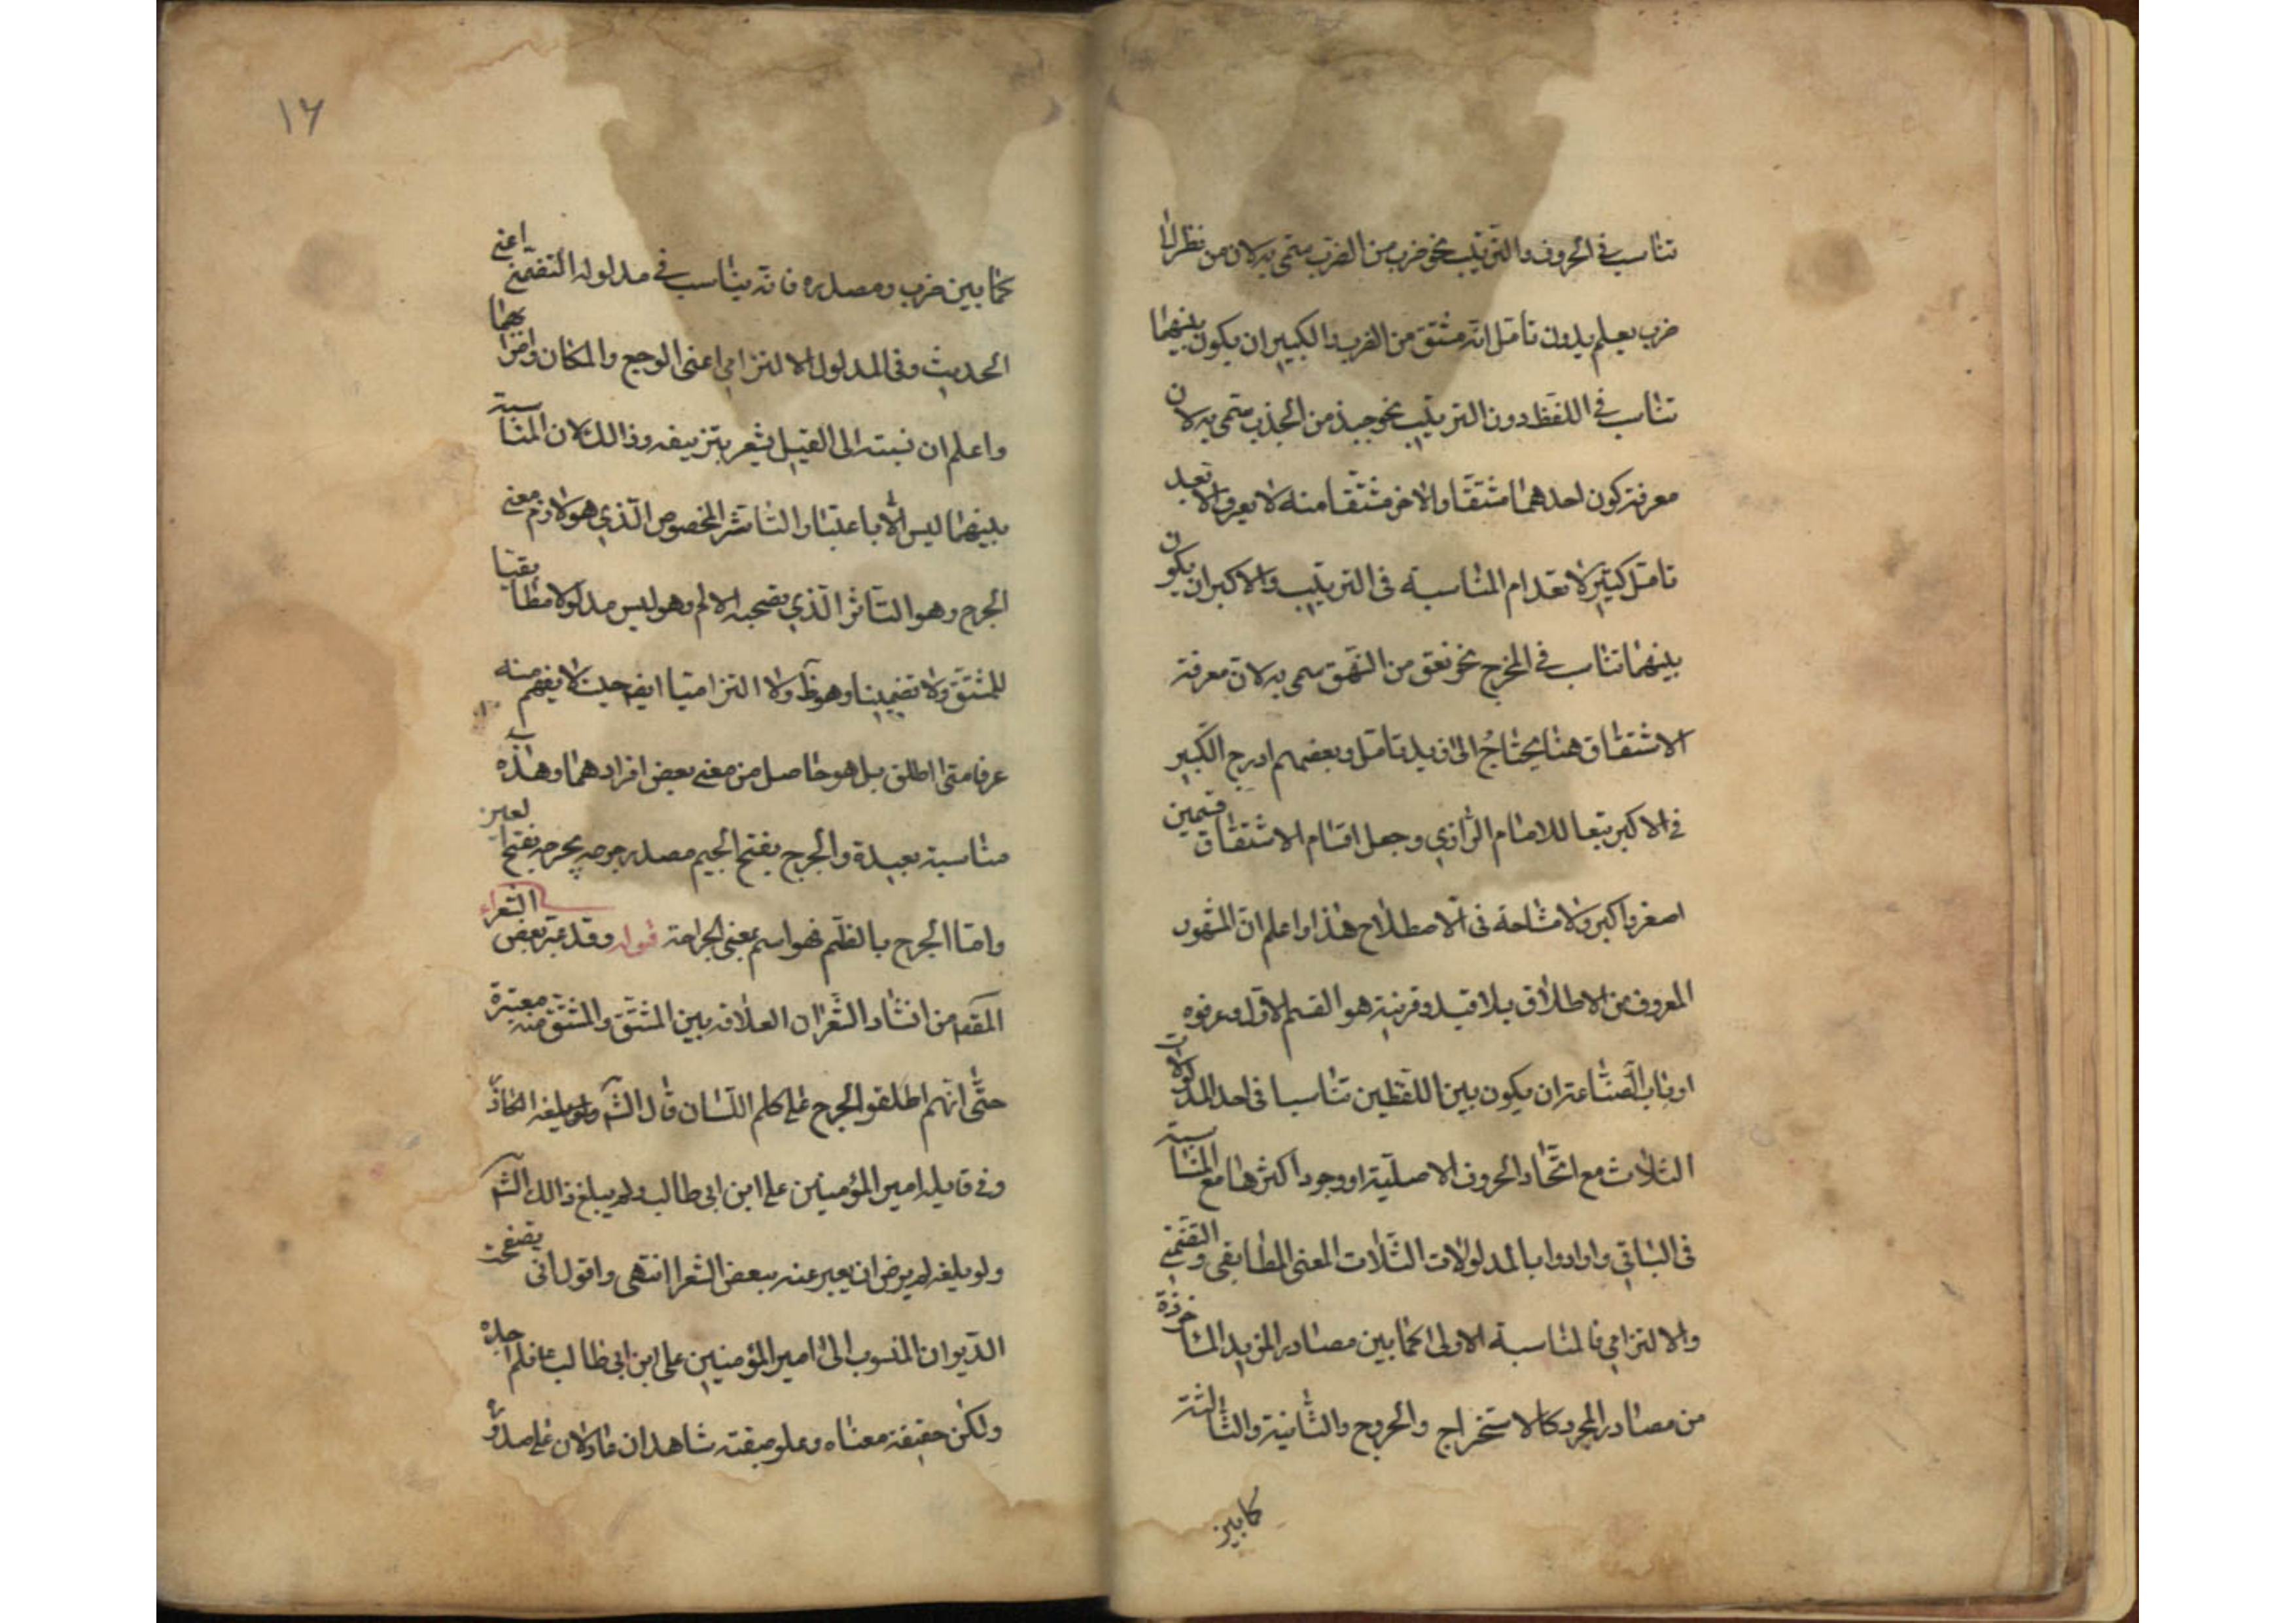 تناسب في الحروف والترتيب نحو ضرب من الضرب سمّي به لان من نظر الى
ضرب يعلم بدون تامّل انّه مشتق من الضرب والكبير ان يكون بينهما
تناسب في اللفظ دون الترتيب نحو جبذ من الجذب سمّي به لان
معرفة كون احدهما مشتقّا والاخر مشتقّا منه لا يعرف الا بعد
تامّل كثير لانعدام المناسبة فى الترتيب والاكبر ان يكون
بينهما تناسب في المخرج نحو نعق من النّهق سمى به لانّ معرفة
الاشتقاق هنا يحتاج الى مزيد تامّل وبعضهم ادرج الكبير
في الاكبر تبعا للامام الرّازي وجعل اقسام الاشتقاق قسمين
اصغر واكبر ولا مشاحة فى الاصطلاح هذا واعلم انّ المشهور
المعروف من الاطلاق بلا قيد وقرينة هو القسم الاوّل وعرفوه
ارباب الصّناعة ان يكون بين اللّفظين تناسبا فى احد المدلولات
الثلاث مع اتّحاد الحروف الاصليّة او وجود اكثرها مع المناسبة
فى الباقي وارادوا بالمدلولات الثّلاث المعنى المطابقى والتضمّني
والالتزامي فالمناسبة الاولى كما بين مصادر المزيد الماخوذة
من مصادر المجرد كالاستخراج والخروج والثّانية والثّالثة
كما بين
١٦
كما بين ضرب ومصدره فانّه يتناسب في مدلوله التضمّني اعني
الحديث وفى المدلول الالتزامي اعنى الوجع والمكان واضرابهما
واعلم ان نسبته الى القيل يشعر بتزييفه وذالك لان المناسبة
بينهما ليس الّا باعتبار التّاثّر المخصوص الّذي هو لازم معنى
الجرح وهو التّاثر الّذي يصحبه الالم وهو ليس مدلولا مطابقيا
للمشتقّ ولا تضمينيا وهو ظ ولا التزاميّا ايض حيث لا يفهم منه
عرفا متى اطلق بل هو حاصل من معنى بعض افرادهما وهذه
مناسبة بعيدة والجرح بفتح الجيم مصدر جرحه يجرحه بفتح العين
وامّا الجرح بالضّم فهو اسم بمعنى الجراحة قوله وقد عبّر بعض الشّعراء
المقصّ من انشاد الشّعر ان العلاقة بين المشتقّ والمشتقّ منه معتبرة
حتّى انّهم اطلقوا الجرح على كلم اللّسان قال الشّ
وفي قايله امير المؤمنين على ابن ابى طالب ولم يبلغ ذالك الشّ
ولو بلغه لم يرض ان يعبر عنه ببعض الشعرا انتهى واقول انى تصفّحت
الدّيوان المنسوب الى امير المؤمنين على ابن ابى طالب ع فلم اجده
ولكن حقيقة معناه وعلو صيغته شاهدان عادلان على صدوره